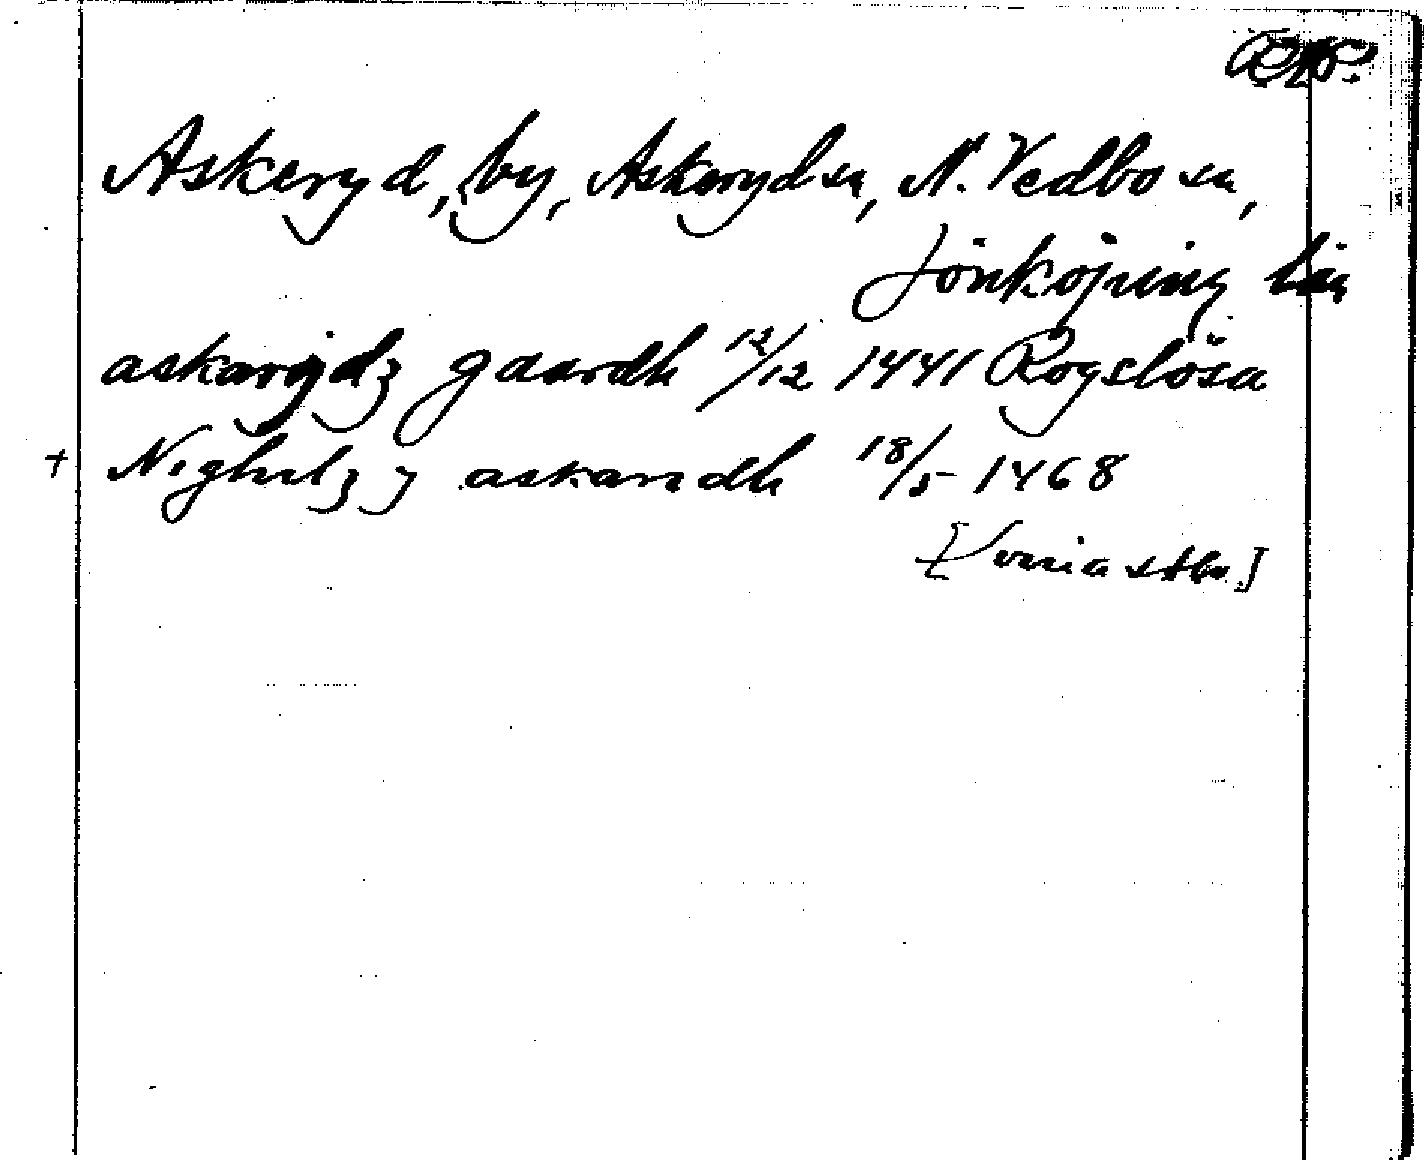 Askeryd, by, Askeryd sn, N. Vedbo sn,
Jönköping län
askarydz gaardh 12/12 1441 Rogslösa
+ Nighulz j askaridh 18/5 1468